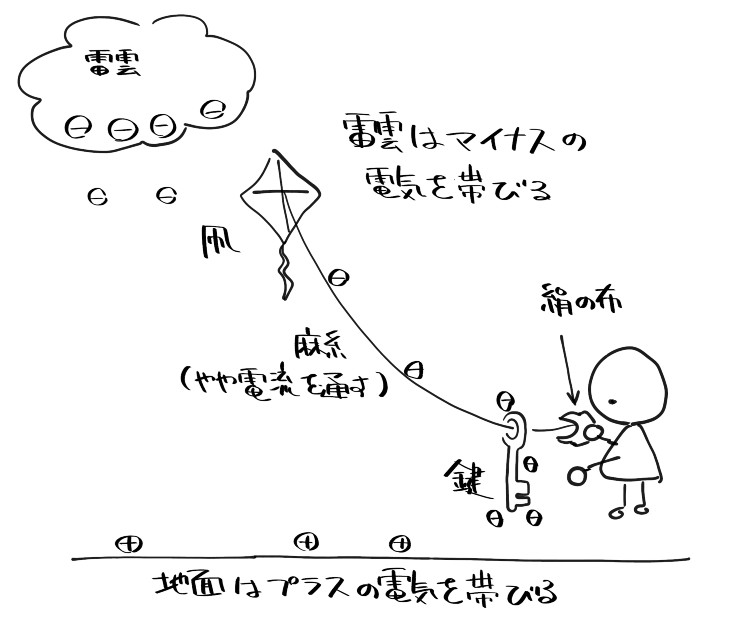 雷雲
雷雲はマイナスの
電気を帯びる
凧
絹の布
麻糸
(やや電流を通す)
鍵
地面はプラスの電気を帯びる